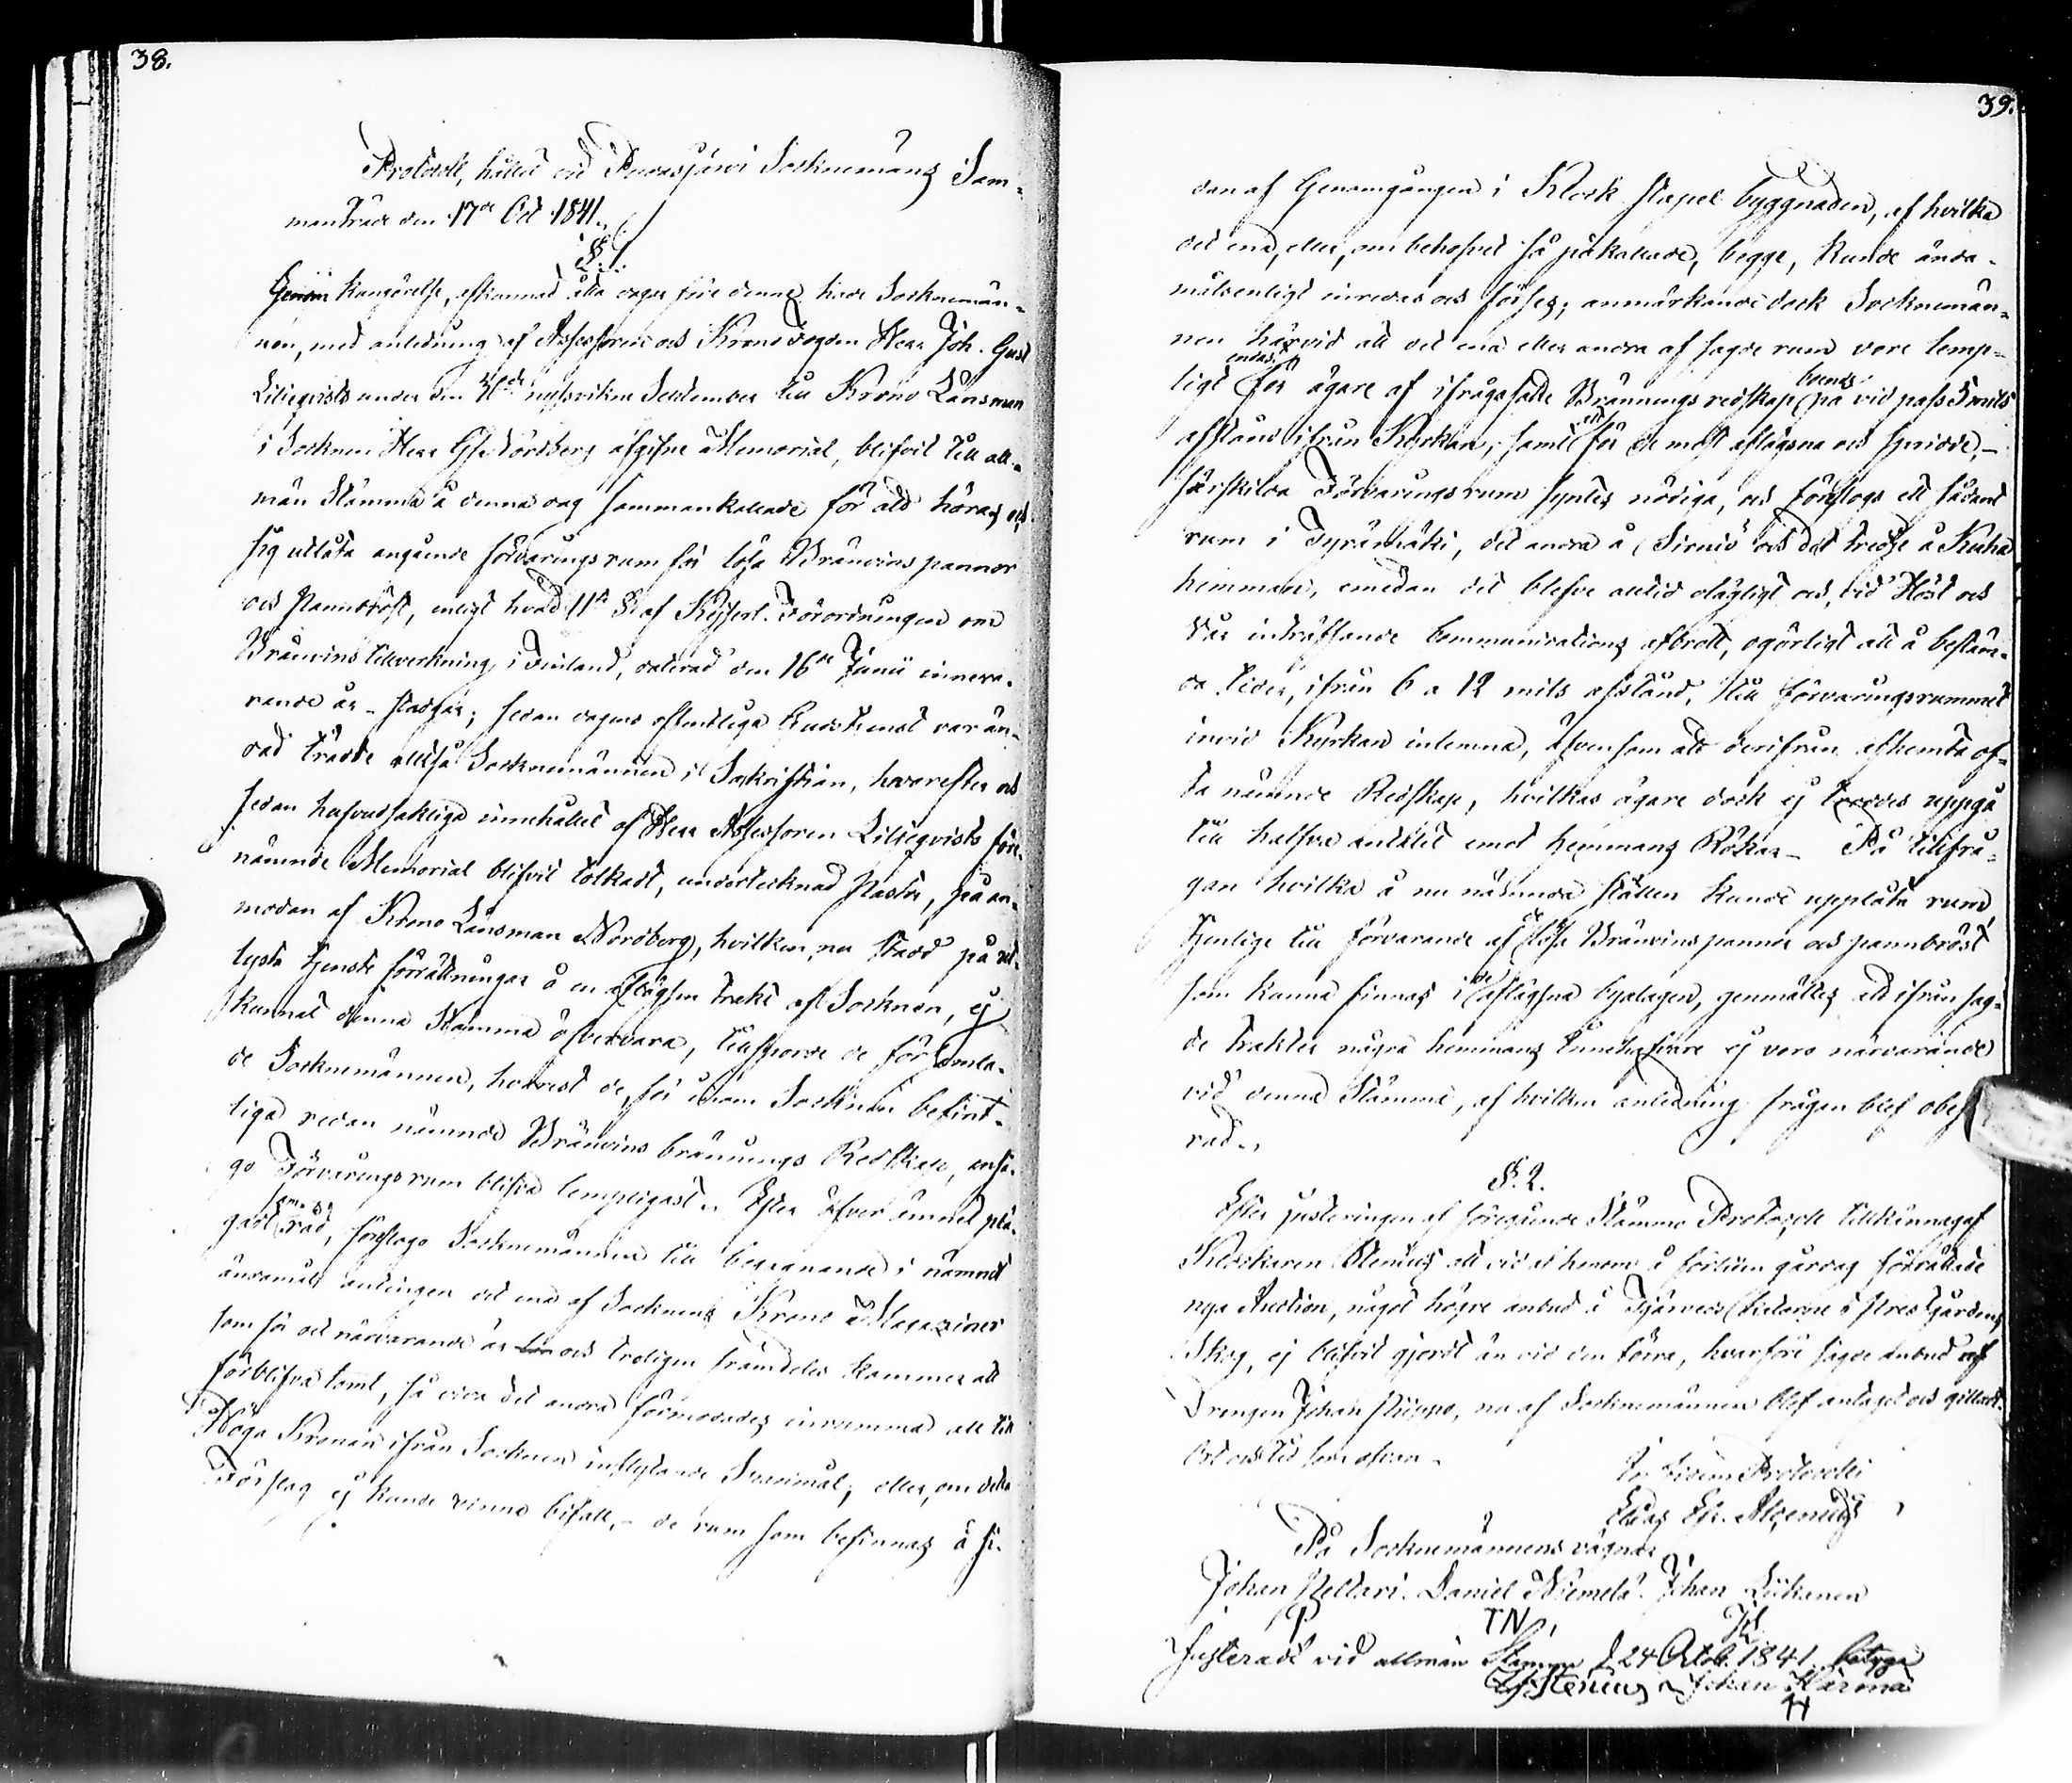 38.
Protocoll, hållet vid Pudasjärvi Socknemäns Sam-
manträde den 17de Oct 1841.
§ 1.
Genom kungörelse, afkunnad åtta dagar före denna, hade Socknemän-
nen, med anledning af Assessoren och Kronofogden Herr Joh. Gust
Liljeqvists under den nyssvikne September till Krono Länsman
i Socknen Herr Nordberg afgifne Memorial, blifvit till all-
män Stämma å denna dag sammankallade för att höras och
sig utlåta angående förvaringsrum för lösa Bränvinspannor
och Pannbröst, enligt hvad 11te § af Kejserl. Förordningen om
Bränvins tillverkning i Finland, daterad den 16de Junii inneva-
rande år stadgar; sedan dagens offentliga Gudstjenst var än-
dad trädde alltså Socknemännen i Sakristian, hvarefter och
sedan hufvudsakliga innehållet af Herr Assessoren Liljeqvists före-
nämnde Memorial blifvit tolkadt, undertecknad Pastor, på an-
modan af Krono Länsman Nordberg, hvilken, nu stadd på
tjenste förrättningar å en aflägsen trakt af Socknen, ej
kunnat denna Stämma öfvervara, tillsporde de försmla-
de Socknemännen, hvarest de, för inom Socknen befint-
liga redan nämnde Bränvins brännings Redskap, anså-
go Förvaringsrum blifva lempligast. Efter öfver ämnet plä-
gadt samråd, förslogo Socknemännen till begagnande i nämndt
ändamål antingen det ena af Socknens Krono Magaziner
som för det närvarande är och troligen framdeles kommer att
förblifva tomt, så vida det andra förmodades inrymma all till
Höga Kronan ifrån Socknen inflytande Spannmål; eller, om detta
Förslag ej kunde vinna bifall, de rum som befinnas å si-
39.
dan af Genomgången i Klock stapel byggnaden, af hvilka
det ena, eller, om behofvet så påkallade, begge, kunde ända-
målsenligt inredas och förses; anmärkande dock Socknemän-
nen härvid att det ena eller andra af sagde rum vore lemp-
ligt endast för ägare af ifrågasatte Bränningsredskap boende på vid pass 3 mils
afstånd ifrån Kyrkan, samt att för de mest aflägsna och spridde,
särskilda Förvaringsrum syntes nödiga, och förslogs ett sådant
rum i Jyränkoski, det andra å Sirniö och det tredje å Kuha
hemman, emedan det blefve alltid olägligt och, vid Höst och
Vår inträffande Communications afbrott, ogörligt att å bestäm-
da tider, ifrån 6 a 12 mils afstånd, till förvaringsrummet
invid Kyrkan inlemna, äfvensom att derifrån afhemta of-
ta nämnde Redskap, hvilkas ägare dock ej troddes uppgå
till halfva antalet emot hemmans Rökar. På tillfrå-
gan hvilka å nu nämnda ställen kunde upplåta rum
tjenlige till förvarande af de lösa Bränvinspannor och pannbröst
som kunna finnas i de aflägsna byalagen, genmältes att ifrån sag-
de trakter några hemmans innehafvare ej voro närvarande
vid denna Stämma, af hvilken anledning frågan blef obes
rad.
§. 2.
Efter justeringen af föregående Stämmo Protocoll tillkännagaf
Klockaren Stenius att vid af honom å förliden gårdag förrättade
nya Auction, något högre anbud å Tjärveds takterne i Prestgårdens
Skog, ej blifvit gjordt än vid den förra, hvarföre sagde anbud af
Drengen Johan Piippo, nu af Socknemännen blef antaget och gilladt.
Ort och tid som ofvan.
In fidem Protocolli
Elias Alcenius
På Socknemännens vägnar
Johan Peltari. Daniel Niemelä. Johan Liikanen
P TN JL
Justeradt vid allmän Stämma d 24 Octob. 1841. betyga
Stenius Johan Kärmä